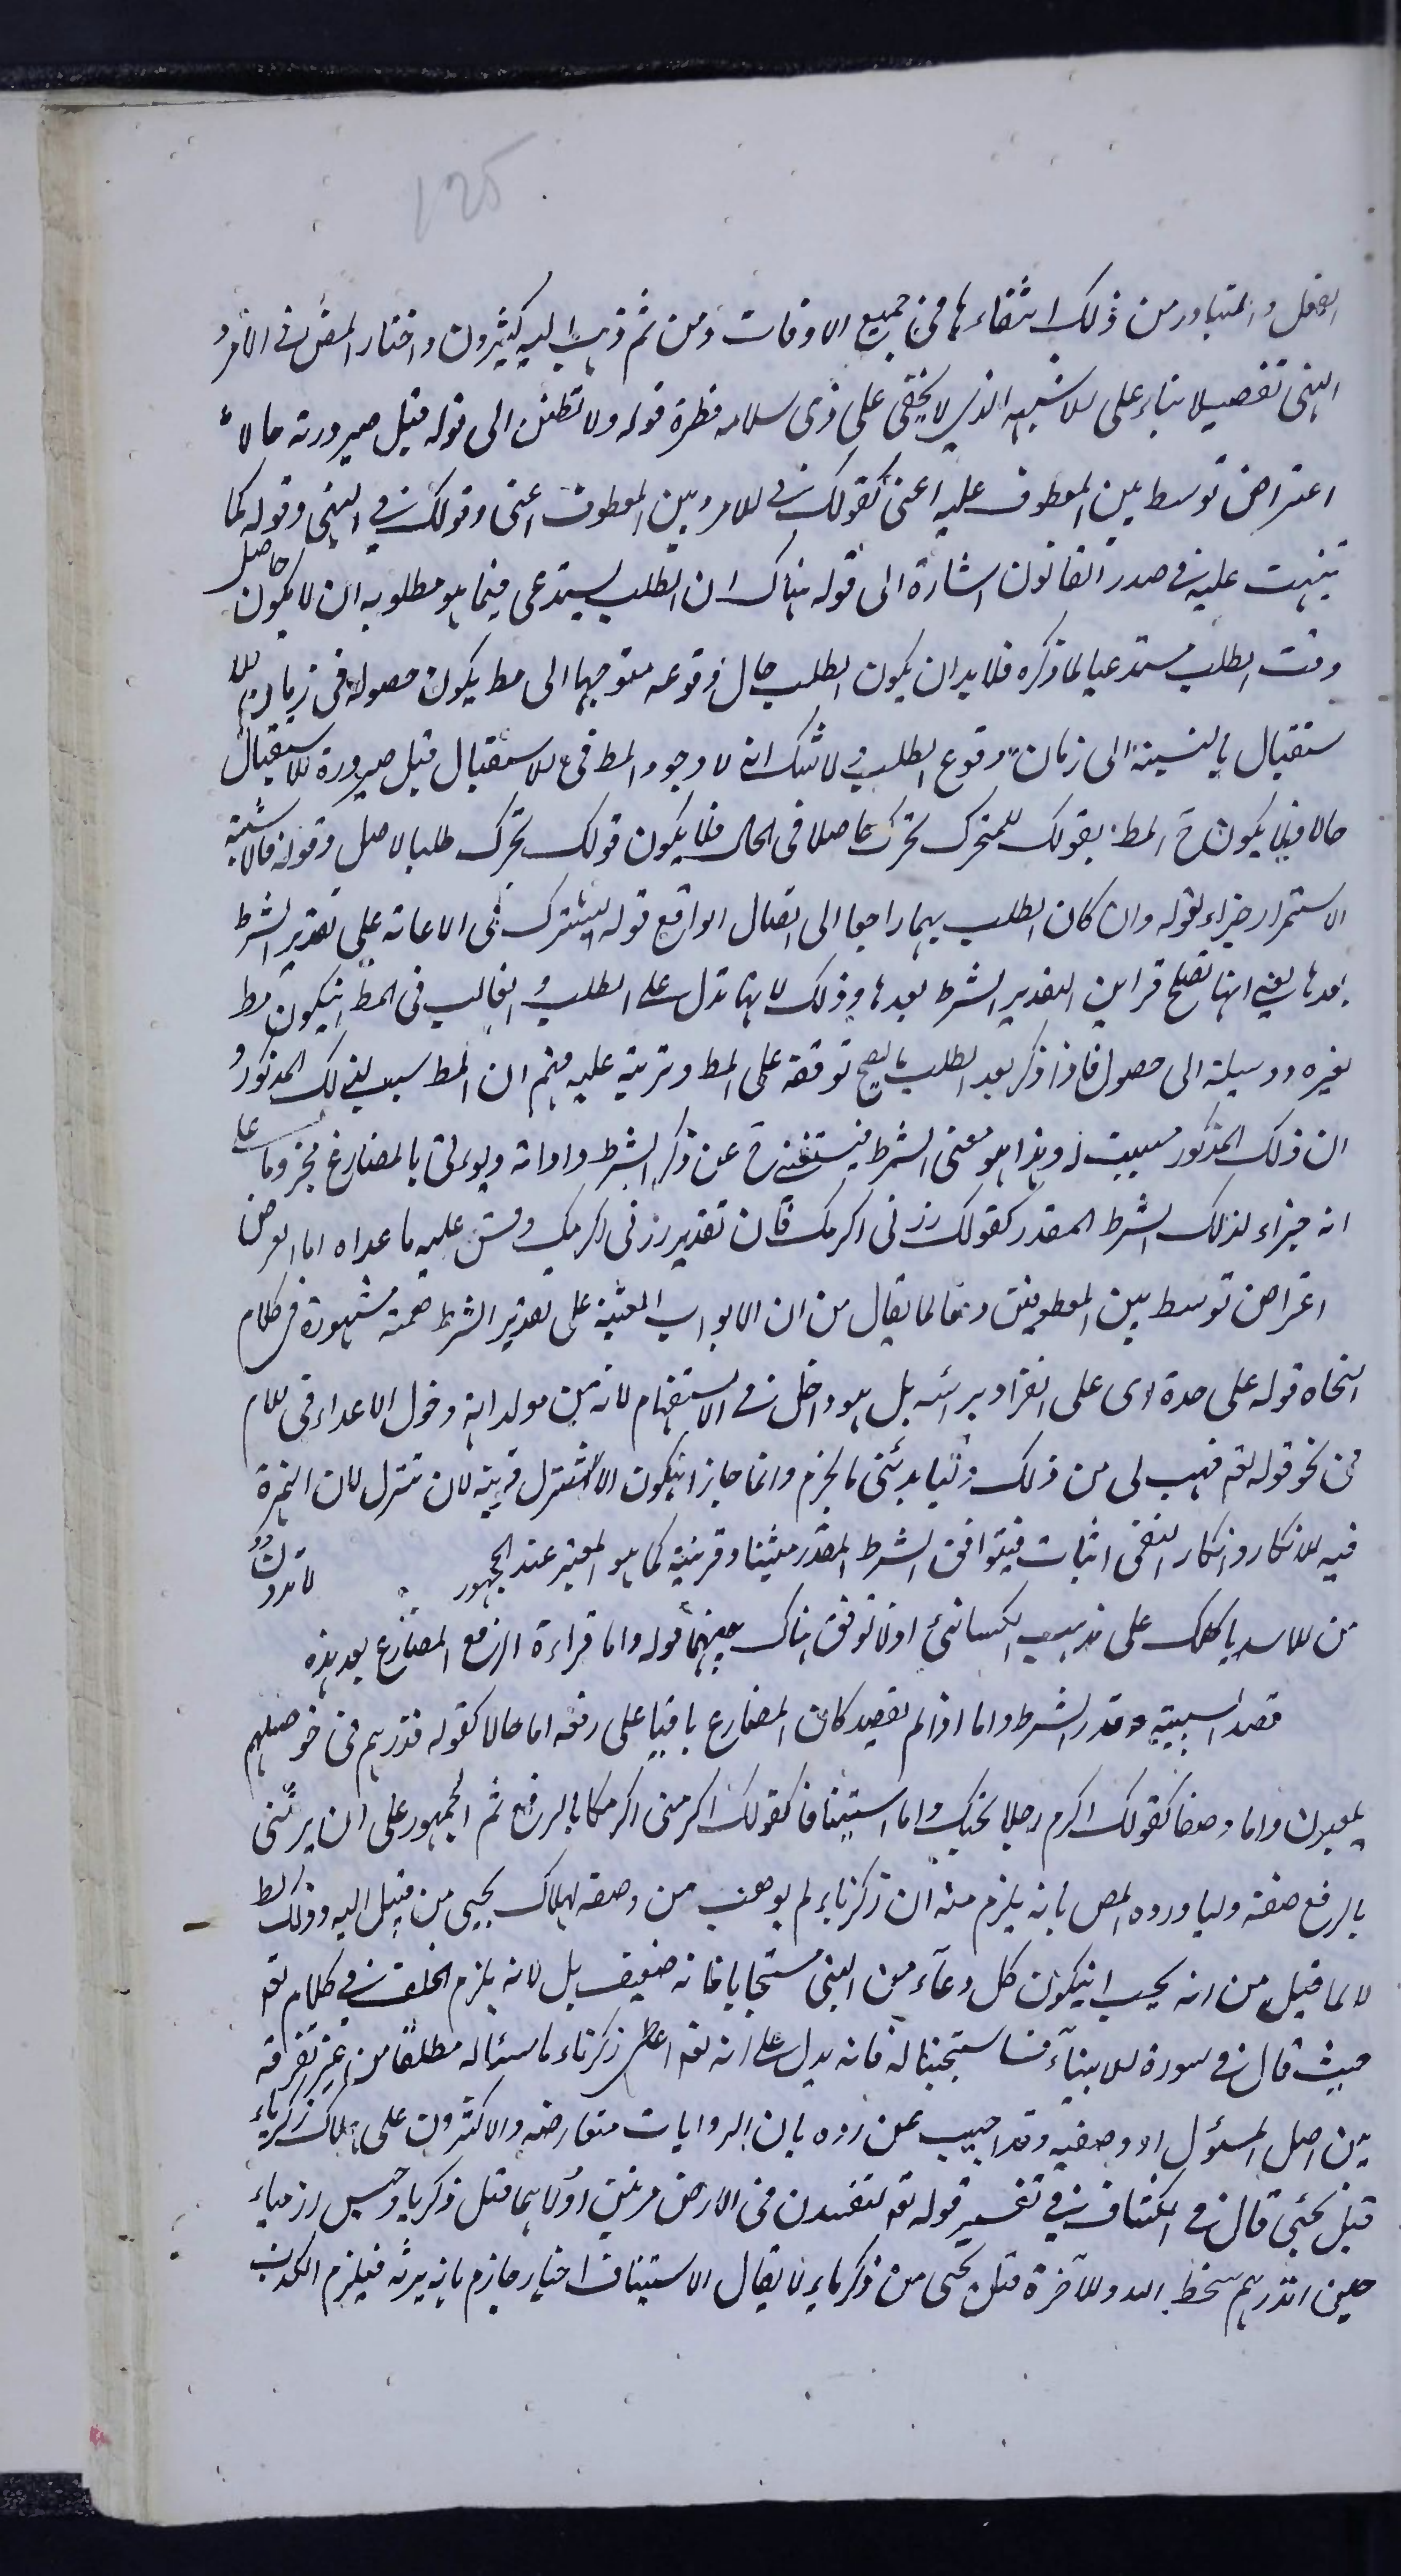 125
الفعل والمتبادر من ذلك انتفاءها في جميع الاوقات ومن ثم ذهب اليه كثيرون واختار المص في الامر و
النهى تفصيلا بناء على الاشبه الذي لا يخفى على ذى سلامه فطرة قوله ولا تظنن الى قوله قبل صيرورته حالا
اعتراض توسط بين المعطوف عليه اعنى كقولك في الامر وبين المعطوف اعنى وقولك في النهى وقوله كما
نبهت عليه في صدر القانون اشارة الى قوله هناك ان الطلب يستدعى فيما هو مطلوبه ان لا يكون حاصلا
وقت الطلب مستدعيا لما ذكره فلا بد ان يكون الطلب حال وقوعه متوجها الى مط يكون حصوله في زمان الا
ستقبال بالنسبة الى زمان وقوع الطلب ولا شك انه لا وجود المط في الاستقبال قبل صيرورة الاستقبال
حالا فلا يكون ح المط بقولك للمتحرك تحرك حاصلا في الحال فلا يكون قولك تحرك طلبا لاصل وقوله فالاشبه
الاستمرار جزاء لقوله وان كان الطلب بهما راجعا الى اتصال الواقع قوله يشترك في الاعانة على تقدير الشرط
بعدها يعنى انها تصلح قراين لتقدير الشرط بعدها وذلك لانها تدل على الطلب والغالب في المط ان يكون مط
لغيره ووسيلة الى حصول فاذا ذكر بعد الطلب ما يصح توقفه على المط وترتبه عليه فهم ان المط سبب لذلك المذكور و
ان ذلك المذكور مسبب له وهذا هو معنى الشرط فيستغنى ح عن ذكر الشرط واداته ويوتى بالمضارع مجزوما على
انه جزاء لذلك الشرط المقدر كقولك زرنى اكرمك فان تقدير زرنى اكرمك وقس عليه ما عداه اما العرض
اعتراض توسط بين المعطوفين دفعا لما يقال من ان الابواب المعينة على تقدير الشرط خمسة مشهورة في كلام
النحاه قوله على حدة اى على انفراد برائه بل هو داخل في الاستفهام لانه من مولداته دخول الاعداء في اللام
في نحو قوله تعه فهب لى من ذلك وليا يرثنى بالجزم وانما جاز ان يكون الا تنزل قرينة لان تنزل لان الهمزة
فيه للانكار وانكار النفى اثبات فيتوافق الشرط المقدر مثبتا وقرينة كما هو المعتبر عند الجمهور لا تدن
من الاسد ياكلك على مذهب الكسائى اذ لا توفق هناك بينهما قوله واما قراءة الرفع المضارع بعد هذه
قصد السببية وقدر الشرط واما اذا لم يقصد كان المضارع باقيا على رفعه اما حالا كقوله فذرهم في خوضهم
يلعبون واما وصفا كقولك اكرم رجلا يحبك واما استينافا كقولك اكرمنى اكرمك بالرفع ثم الجمهور على ان يرثنى
بالرفع صفة وليا ورده المص بانه يلزم منه ان زكرياء لم يوهب من وصفه لهلاك يحيى من قبل اليه وذلك بط
لا لما قيل من انه يجب ان يكون كل دعاء من النبى مستجابا فانه ضعيف بل لانه يلزم الخلف في كلام تعه
حيث قال في سورة الانبياء فاستجبنا له فانه يدل على انه تعه اعطى زكرياء ما سئاله مطلقا من غير تفرقه
بين اصل المسئول او وصفيه وقد اجيب عن رده بان الروايات متعارضة والاكثرون على هلاك زكرياء
قبل يحيى قال في الكشاف في تفسير قوله تعه لتفسدن في الارض مرتين اولاهما قتل زكريا وحبس ارمياء
حين انذرهم سخط الله والآخرة قتل يحيى من زكرياء لا يقال الاستيناف اخبار جازم بانه يرثه فيلزم الكذب